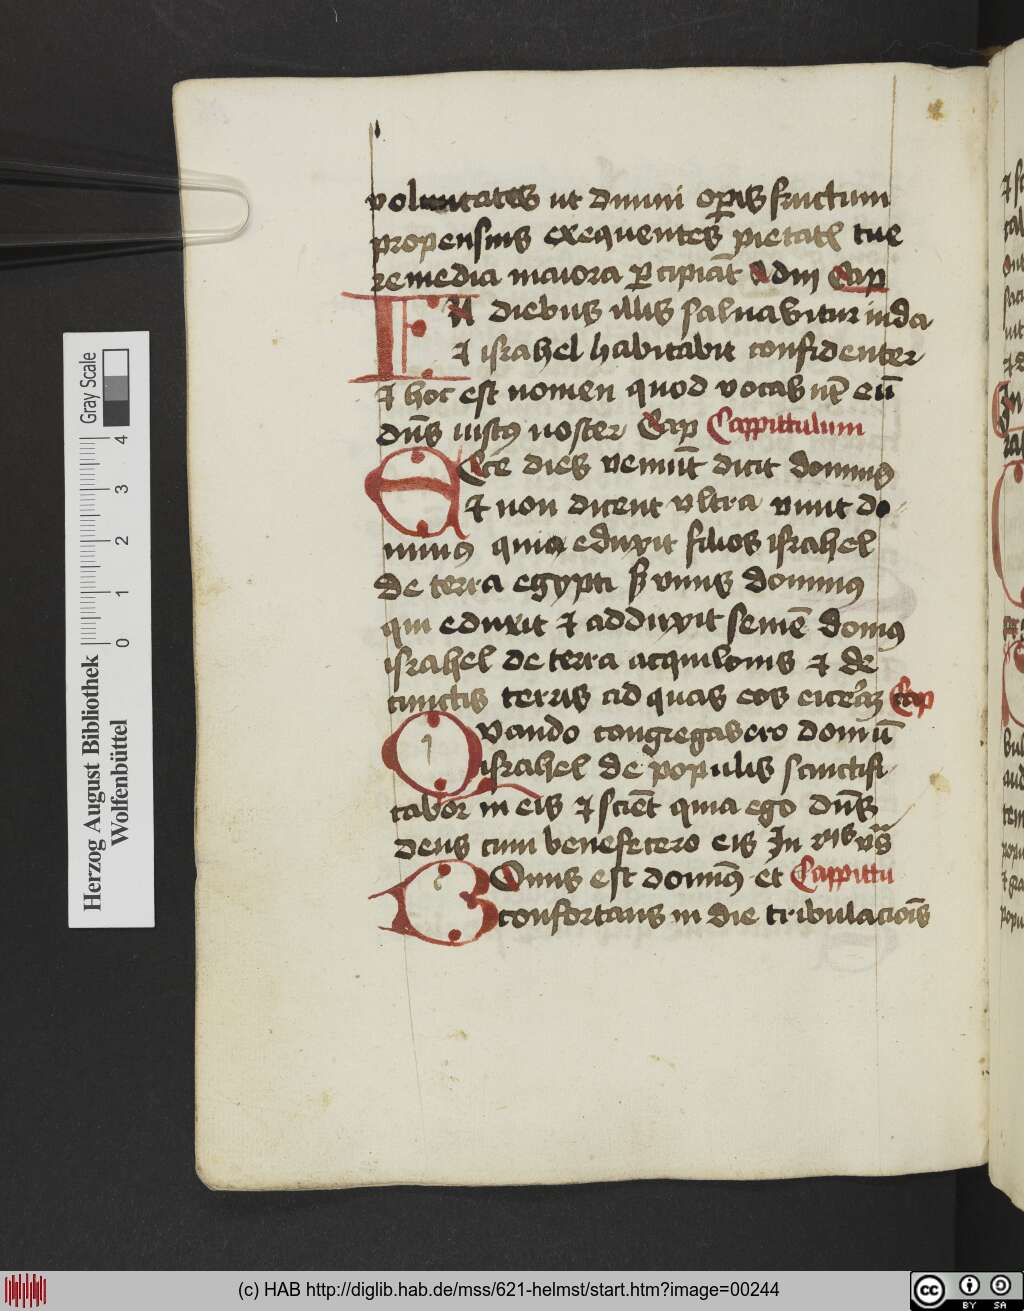 voluntates ut diuini op̄is fructum
propensius exequentes pietatꝭ tue
remedia maiora ꝑcipiāt ꝑ dn̄ Cap
IN diebus illis saluabitur iuda
⁊ israhel habitabit confidenter
⁊ hoc est nomen quod vocabūt eū
dn̄s iustꝯ noster Cap Cappittulum
Ecce dies veniūt dicit dominꝯ
⁊ non dicent vltra viuit do
minꝯ quia eduxit filios israhel
de terra egypti sꝫ viuus dominꝯ
qui eduxit ⁊ adduxit semē domꝯ
israhel de terra acquilonis ⁊ de
cunctis terris ad quas eos Cap
Quando congregabero domū
israhel de populis sanctifi
cabor in eis ⁊ sciēt quia ego dn̄s
deus cum benefecero eis In
Bonus est dominꝯ et Cappittu
confortans in die tribulacioīs
Herzog August Bibliothek
Wolfenbüttel
0 1 2 3 4
Gray Scale
(c) HAB http://diglib.hab.de/mss/621-helmst/start.htm?image=00244
cc BY SA